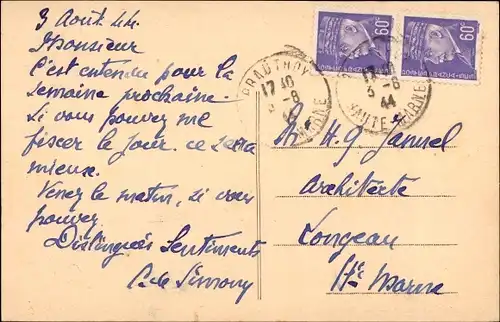 3 Août 44.
Monsieur
C'est entendu pour la
semaine prochaine.
Si vous pouvez me
fixer le jour. ce sera
mieux.
Venez le matin, si vous
pouvez
Distingués Sentiments
C. de Simony
PRAUTHOY
17 40
3 -8
MARNE
17 40
3 -8
44
HAUTE MARNE
60c
60c
Mr H. G. Jamuel
Architecte
Longeau
Hte Marne